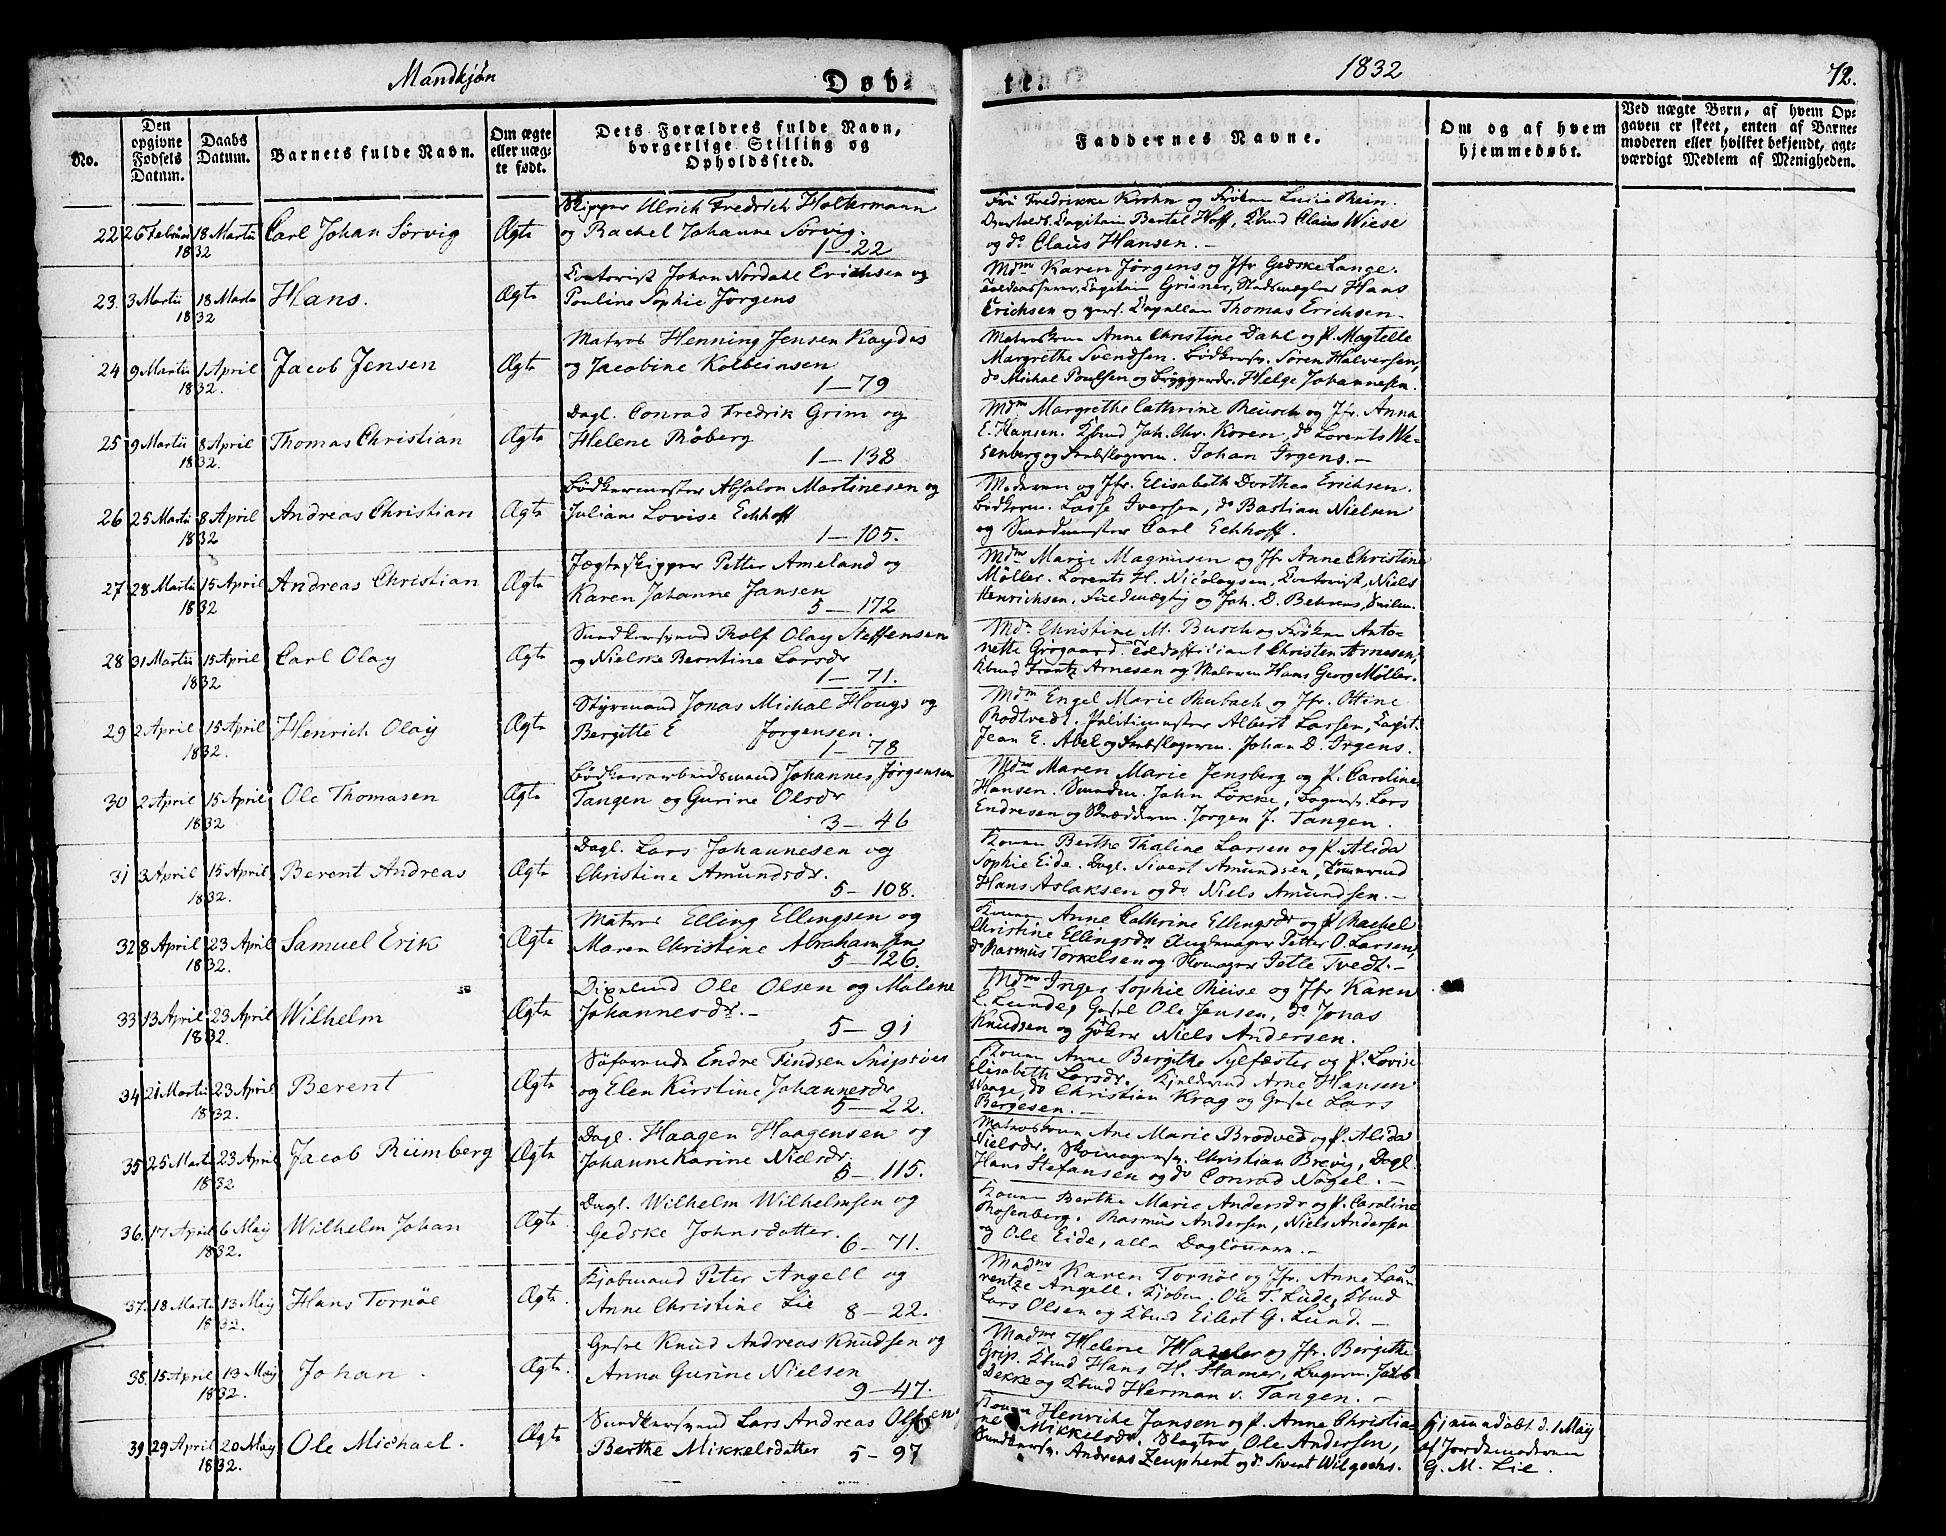 Mandkjøn
Døb-
te.
1832
72.
No.
Den opgivne Fødsels Datum.
Daabs Datum.
Barnets fulde Navn.
Om ægte eller uægte født.
Dets Forældres fulde Navn, borgerlige Stilling og Opholdssted.
Faddernes Navne.
Om og af hvem hjemmedøbt.
Ved uægte Børn, af hvem Opgaven er skeet, enten af Barnemoderen eller hvilket bekjendt, agtværdigt Medlem af Menigheden.
22 26 Februar 18 Martii 1832 Carl Johan Sørvig Ægte
Skipper Ulrich Fredrich Holtermann
og Rachel Johanne Sørvig.
1-22
Fru Fredrikke Krohn og Frøken Lucie Rein.
Capitain Bertel Hoff, Kbmd Claus Wiese
og do Claus Hansen.-
23. 3 Martii 18 Marti 1832 Hans. Ægte
Contorist Johan Nordahl Erichsen og
Pouline Sophie Jørgens
Mdm Karen Jørgens og Jfr Gedske Lange.
Capitain Grüner, Stadsmægler Hans
Erichsen og pers. Capellan Thomas Erichsen.
24 9 Martii 1 April 1832. Jacob Jensen Ægte
Matros Henning Jensen Kaydas
og Jacobine Kolbeinsen
1-79
Matroskone Anne Christine Dahl og P. Magtelle
Margrethe Svendsen. Bødkersv. Søren Halversen,
do Michal Poulsen og Bryggerdr. Helge Johannesen.
25 9 Martii 8 April 1832. Thomas Christian Ægte
Dagl. Conrad Fredrik Grim og
Helene Røberg
1-138
Mdm Margrethe Cathrine Reusch og Jfr. Anna
E. Hansen. Kbmd Joh. Chr. Koren, do Lorents We-
senberg og Johan Irgens.-
26 25 Martii 8 April 1832 Andreas Christian Ægte
Bødkermester Absalon Martinesen og
Juliane Lovise Echhoff
1-105.
Moderen og Jfr. Elisabeth Dorthea Erichsen.
Bødkerm. Lasse Iversen, do Bastian Nielsen
og Carl Echhoff.
27 28 Martii 15 April 1832 Andreas Christian Ægte
Jægteskipper Petter Ameland og
Karen Johanne Jansen
5-172
Mdm Marie Magnusen og Jfr Anne Christine
Møller. Lorents H. Nicolaysen, Contorist, Niels
Henrichsen, Fuldmægtig og Joh. D. Behrens,
28 31 Martii 15 April 1832 Carl Olay Ægte
Rolf Olay Steffensen
og Nielske Berntine Larsdr
1-71.
Md. Christine M. Busch og Frøken Anto-
nette Grøgaard. Toldofficiant Christen Arnesen,
Kbmd Frantz Arnesen og Maleren Hans Georg Møller.
29 2 April 15 April 1832. Henrich Olay Ægte
Styrmand Jonas Michal Hougs og
Bergitte E Jørgensen.
1-78
Mdm Engel Marie Rubach og Jfr. Ottine
Rodtvedt. Politimester Albert Larsen, Capit.
Jean E. Abel og Johan D. Irgens.
30 2 April 15 April 1832 Ole Thomasen Ægte
Bødkerarbeidsmand Johannes Jørgensen
Tangen og Gurine Olsdr
3-46
Mdm Maren Marie Jensberg og P. Caroline
Hansen. John Løkke, Lars
Endresen og Jørgen J. Tangen.
31 3 April 15 April 1832. Berent Andreas Ægte
Dagl. Lars Johannesen og
Christine Amundsdr.
5-108.
Konen Berthe Thaline Larsen og P. Alida
Sophie Eide. Dagl. Sivert Amundsen, Tømmermd
Hans Aslaksen og do Niels Amundsen.-
32 8 April 23 April 1832. Samuel Erik Ægte
Matros Elling Ellingsen og
Maren Christine Abrahamsen
5-126.
Konen Anne Cathrine Ellingsdr og P. Rachel
Christine Ellingsdr Petter O. Larsen,
do Rasmus Torkelsen og Skomager Jetle Tvedt.-
33 13 April 23 April 1832. Wilhelm Ægte
Ole Olsen og Malene
Johannesdr.-
5-91
Mdm Inger Sophie Reise og Jfr Karen
L. Lunde, Ole Jensen, do Jonas
Knudsen og Høker Niels Andersen.
34 21 Martii 23 April 1832. Berent Ægte
Søfarende Endre Findsen Snipsøer
og Elen Kirstine Johannesdr
5-22.
Konen Anne Bergithe Sylfæster og P. Lovise
Elisabeth Larsdr. Arne Hansen
Waage, do Christian Krag og Lars
Bergesen.-
35 25 Marti 23 April 1832 Jacob Rümberg Ægte
Dagl. Haagen Haagensen og
Johanne Karine Nielsdr.
5-115.
Matroskone Ane Marie Brodved og P. Alida
Nielsdr. Skomagersv. Christian Brevig, Dagl.
Hans Stefansen og do Conrad Nagel.-
36. 17 April 6 May 1832. Wilhelm Johan Ægte
Dagl. Wilhelm Wilhelmsen og
Gedske Johnsdatter.
6-71.
Konen Berthe Marie Andersdr og P. Caroline
Rosenberg. Rasmus Andersen, Niels Andersen
og Ole Eide, alle Dagleiere.-
37. 18 Martii 13 May 1832. Hans Tornøe Ægte.
Kjøbmand Peter Angell og
Anne Christine Lie 8-22.
Madme Karen Tornøe og Jfr. Anne Lau-
rentze Angell. Kjøbm. Ole T. Lude, Kbmd
Lars Olsen og Kbmd Eilert G. Lund.-
38. 15 April 13 May 1832. Johan. Ægte.
Knud Andreas Knudsen og
Anna Gurine Nielsen
9-47.
Madme Helene og Jfr. Bergithe
Grip. Kbmd Hans H. Stamer, Jacob
Dekke og Kbmd Herman v. Tangen.-
39 29 April 20 May 1832. Ole Michael. Ægte
Lars Andreas Olsen
Berthe Mikkelsdatter 5-97
Konen Henriche Jansen og P. Anne Christia-
ne Mikkelsdr. Slagter Ole Andersen,
Andreas Zeuphent og do Sivert Wilgochs.
Hjemmedøbt d. 1 May
af Jordemoderen
G. M. Lie.